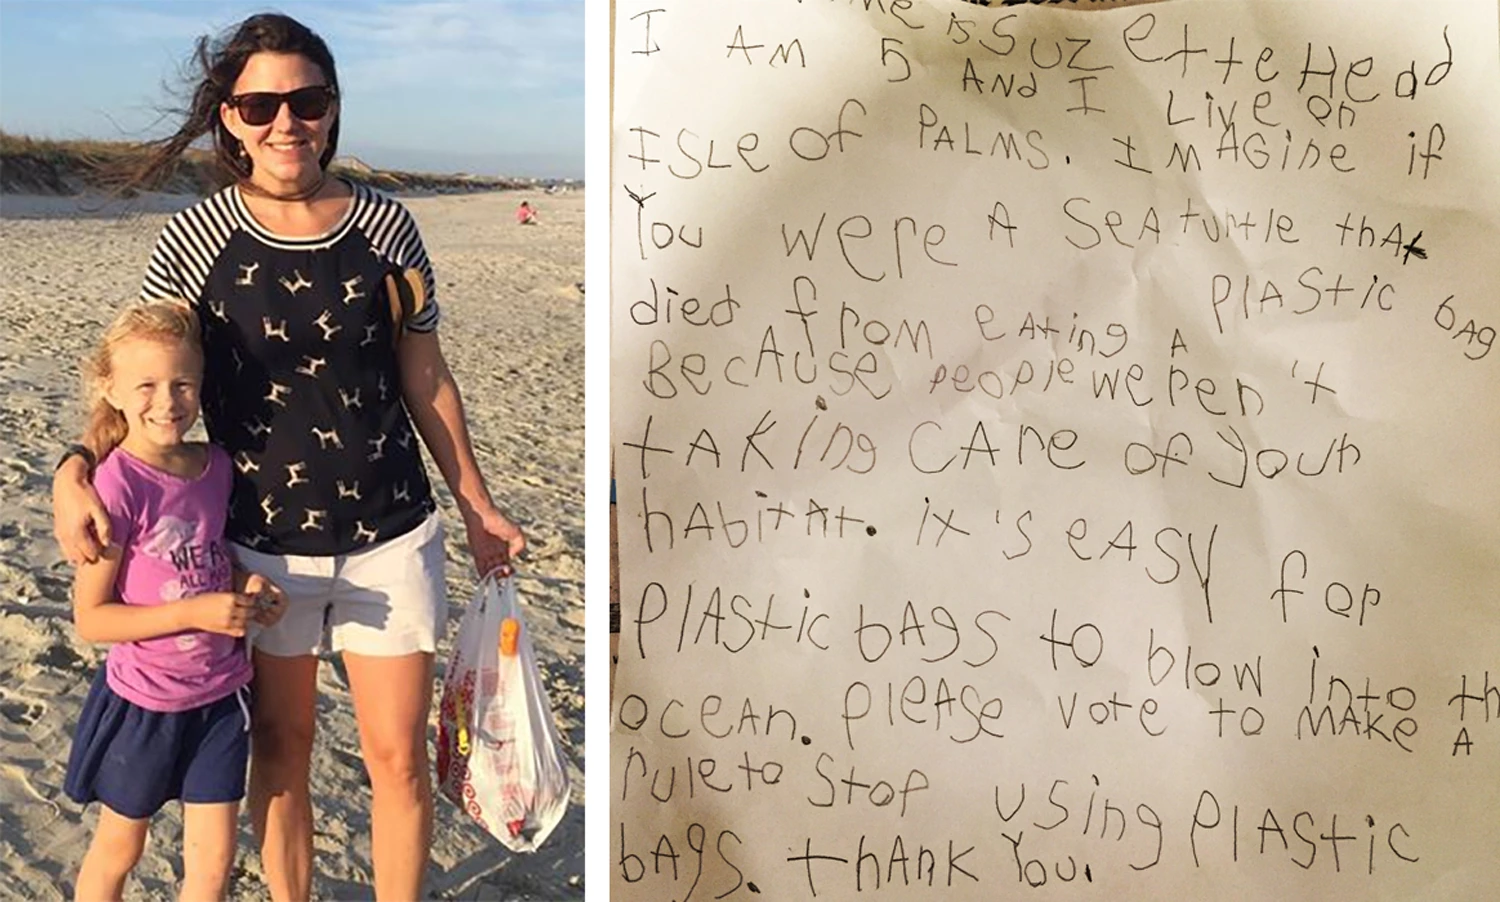 WE A
ALL
is Suzette Head
I AM 5 AND I Live on
ISLe of PALMS. IMAGine if
You were A SeA turtle thAt
died from eAting A PlAStic bAg
BecAuse people weren't
tAKing CAre of your
hAbitAt. it's eASY for
PlAStic bAgS to blow into th
oceAn. PleASe vote to MAKe A
rule to Stop using PlAStic
bAgS. thAnK You.